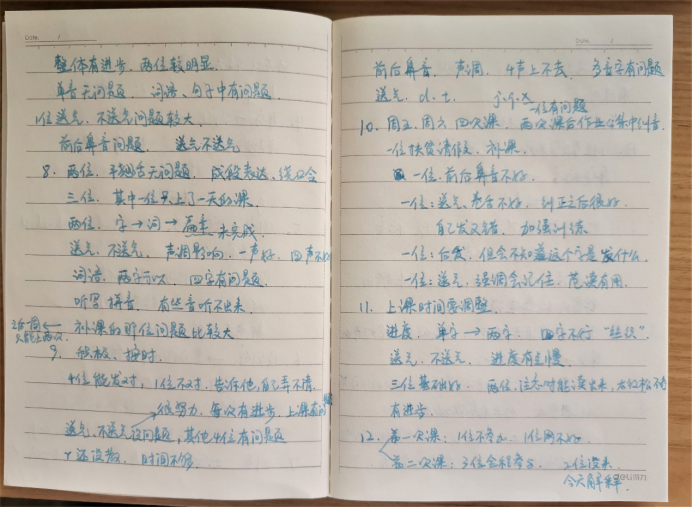 Date. /
整体有进步. 两位较明显.
单音无问题. 词语、句子中有问题
1位送气、不送气问题较大.
前后鼻音问题. 送气不送气
8. 两位. 平翘舌无问题. 成段表达、绕口令
三位. 其中一位只上了一天的课.
两位. 字→词→ 未完成
送气、不送气. 声调影响. 一声好. 四声不好
词语. 两字可以. 四字有问题.
听写拼音. 有些音听不出来.
补课的那位问题比较大
9. 积极、按时.
4位能发对, 1位不对. 告诉他, 自己弄不清.
很努力. 每次有进步. 上课有时
送气、不送气没问题, 其他4位有问题
r 还没教. 时间不够.
Date. /
前后鼻音. 声调. 4声上不去. 多音字有问题
送气. d. t. j. q. x
一位有问题
10. 周五、周六 四次课. 两次课后作业 集中纠音.
一位 请假. 补课.
一位. 前后鼻音不好.
一位: 送气. 卷舌不好. 纠正之后很好.
自己发又错. 加强训练
一位: 后发. 但会不知道这个字是发什么.
一位: 送气. 强调会记住. 范读有用.
11. 上课时间要调整.
进度. 单字→两字: 四字不行 “组织”
送气. 不送气. 进度有点慢
三位基础好. 两位. 注意时能读出来,
有进步.
12. 第一次课: 1位不参加. 1位网不好.
第二次课: 3位全程参与. 2位没来.
今天解释.
deli